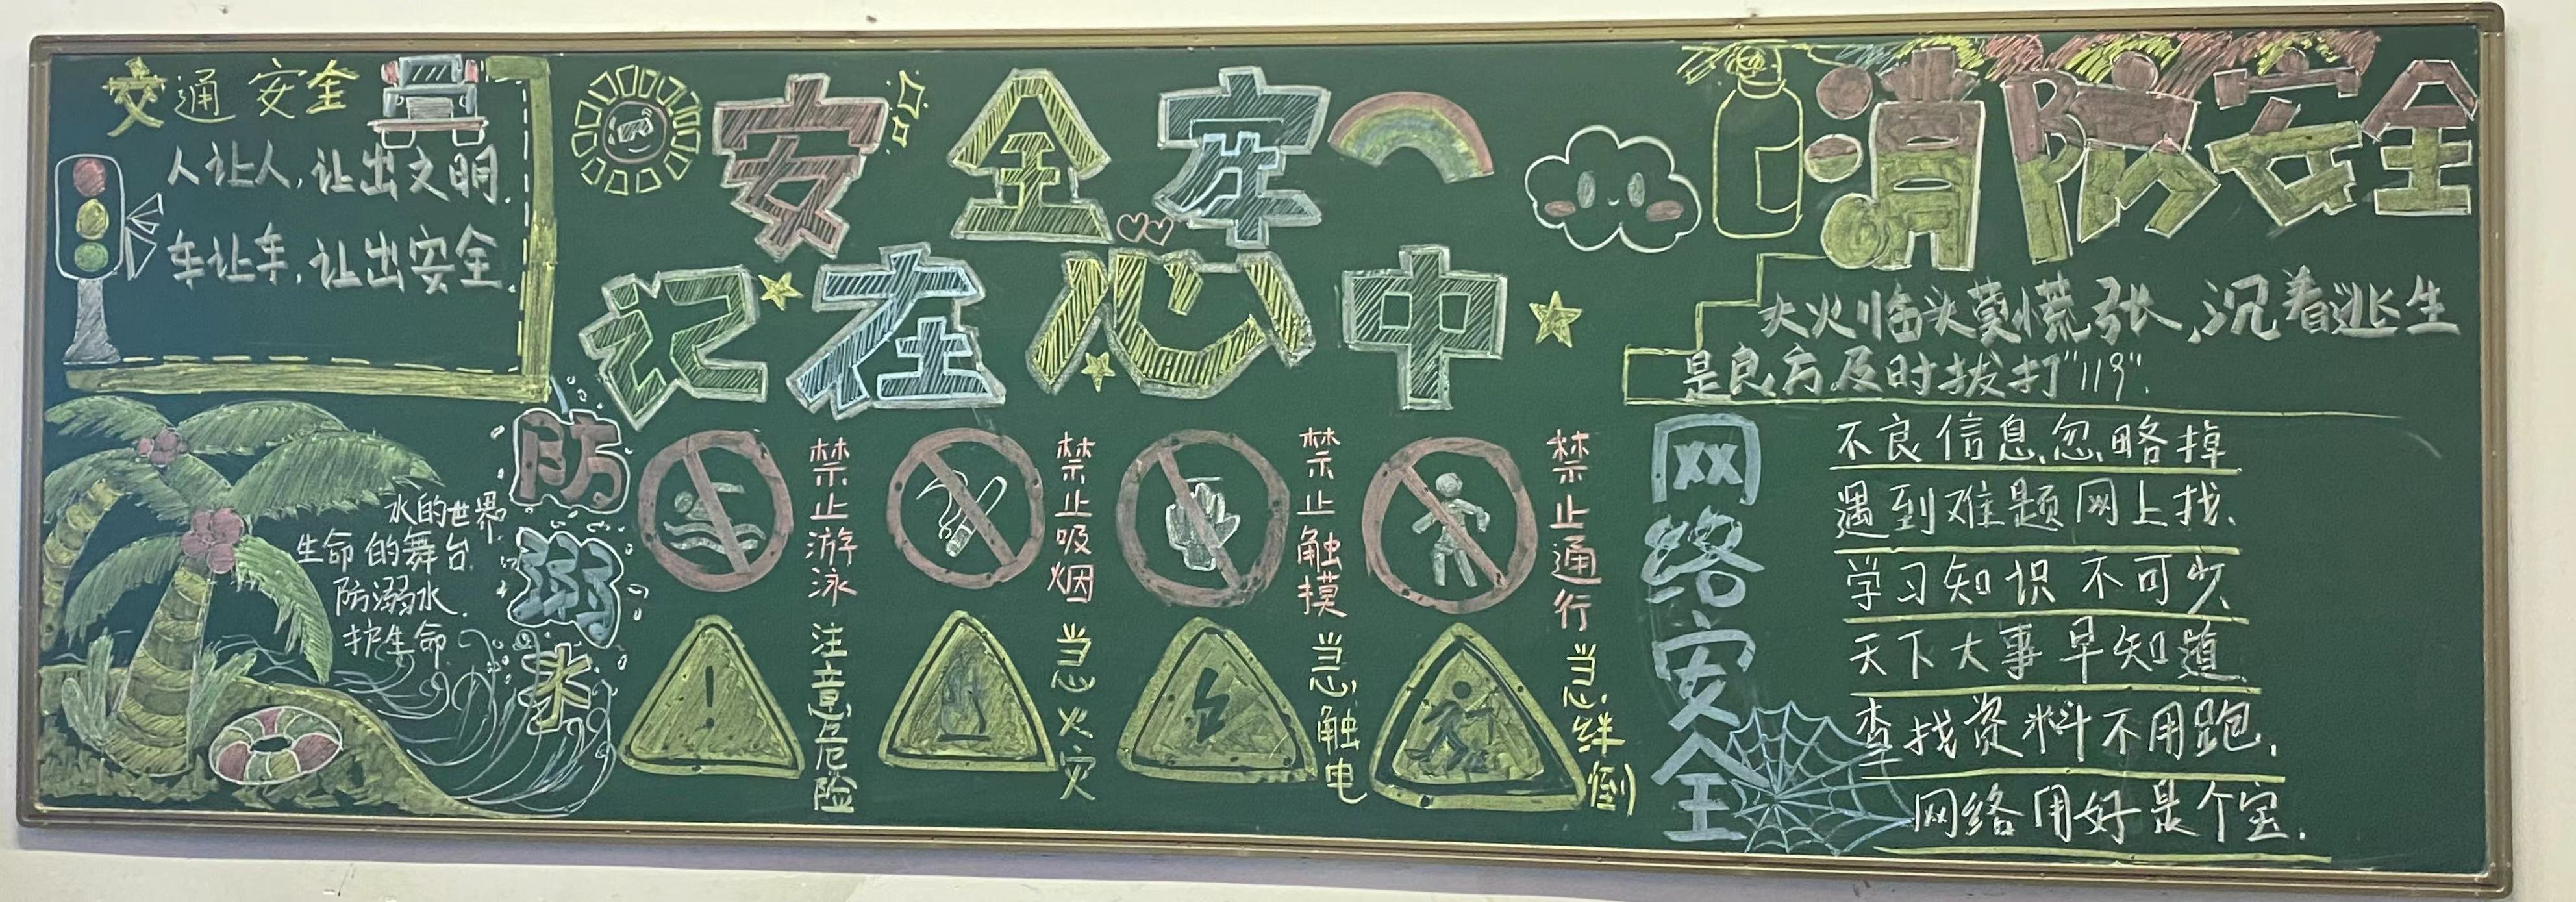 交通安全
人让人,让出文明.
车让车,让出安全.
安全牢
记在心中
消防安全
大火临头莫慌张,沉着逃生
是良方及时拔打"119".
防溺水
水的世界
生命的舞台
防溺水.
护生命.
禁止游泳
禁止吸烟
禁止触摸
禁止通行
注意危险
当心火灾
当心触电
当心绊倒
网络安全
不良信息忽略掉
遇到难题网上找.
学习知识不可少
天下大事早知道
查找资料不用跑.
网络用好是个宝.